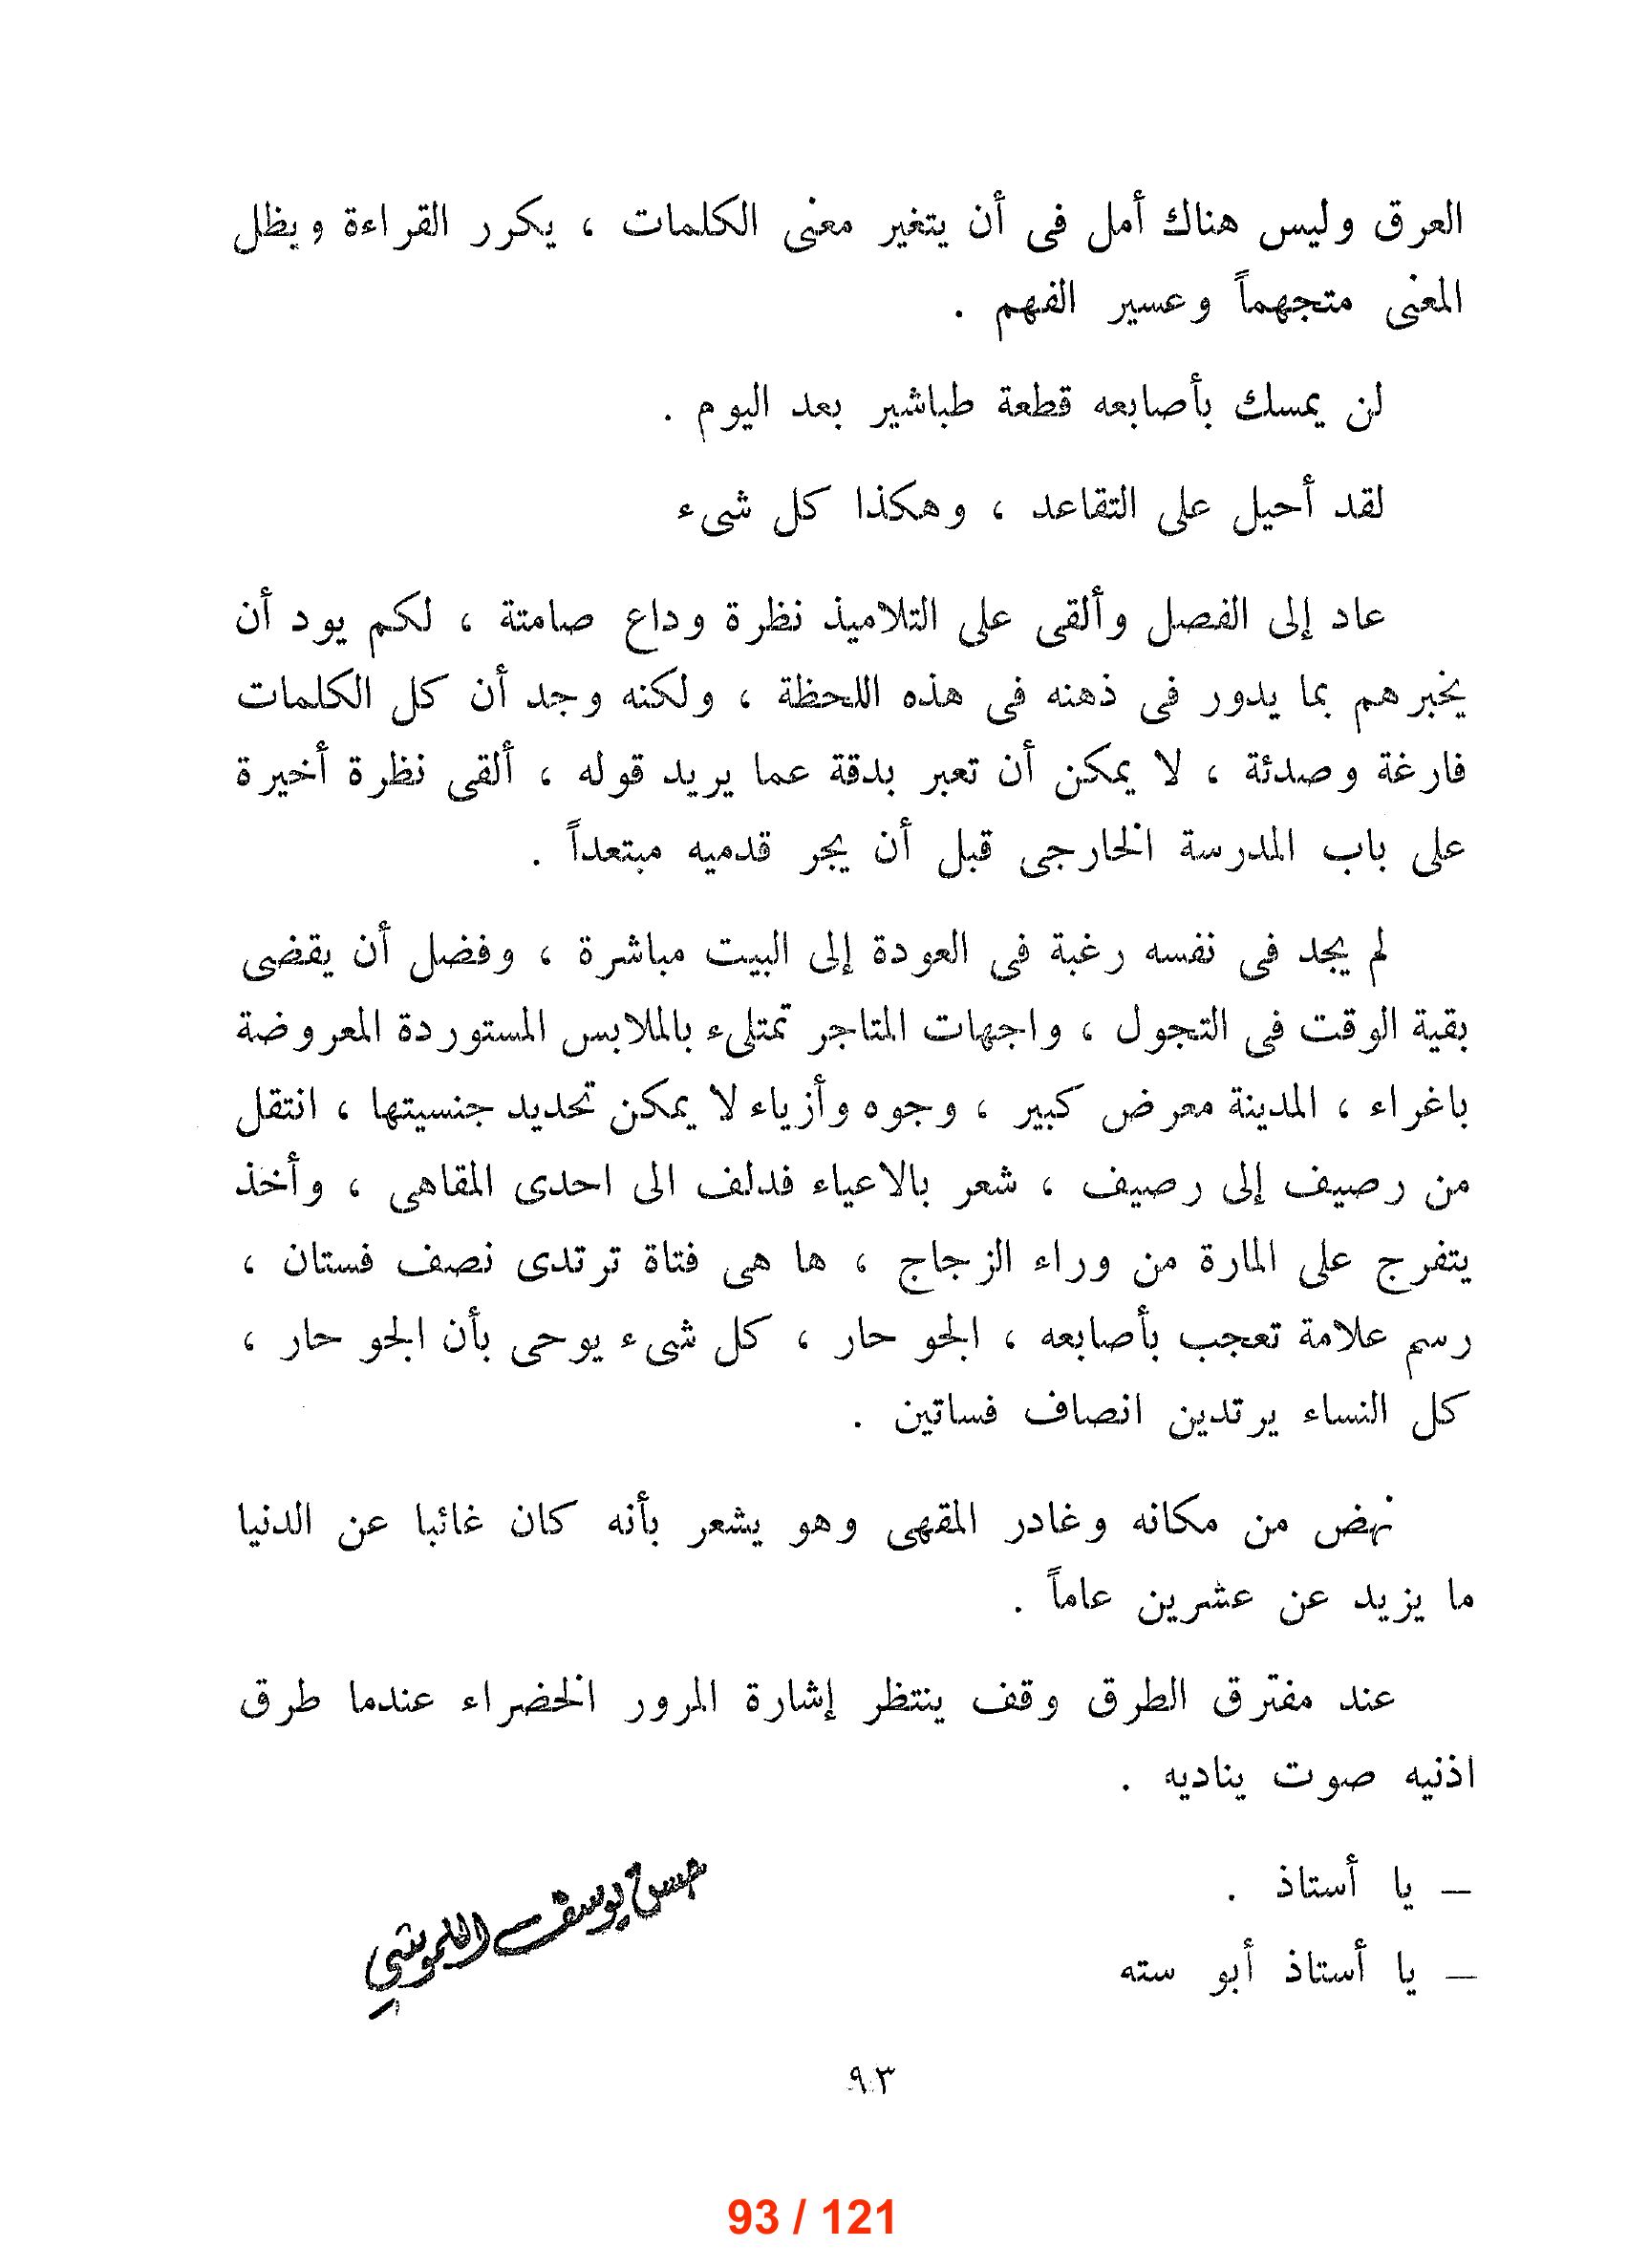 العرق وليس هناك أمل فى أن يتغير معنى الكلمات ، يكرر القراءة ويظل
المعنى متجهماً وعسير الفهم .
لن يمسك بأصابعه قطعة طباشير بعد اليوم .
لقد أحيل على التقاعد ، وهكذا كل شىء
عاد إلى الفصل وألقى على التلاميذ نظرة وداع صامتة ، لكم يود أن
يخبرهم بما يدور فى ذهنه فى هذه اللحظة ، ولكنه وجد أن كل الكلمات
فارغة وصدئة ، لا يمكن أن تعبر بدقة عما يريد قوله ، ألقى نظرة أخيرة
على باب المدرسة الخارجى قبل أن يجر قدميه مبتعداً .
لم يجد فى نفسه رغبة فى العودة إلى البيت مباشرة ، وفضل أن يقضى
بقية الوقت فى التجول ، واجهات المتاجر تمتلىء بالملابس المستوردة المعروضة
باغراء ، المدينة معرض كبير ، وجوه وأزياء لا يمكن تحديد جنسيتها ، انتقل
من رصيف إلى رصيف ، شعر بالاعياء فدلف الى احدى المقاهى ، وأخذ
يتفرج على المارة من وراء الزجاج ، ها هى فتاة ترتدى نصف فستان ،
رسم علامة تعجب بأصابعه ، الجو حار ، كل شىء يوحى بأن الجو حار ،
كل النساء يرتدين انصاف فساتين .
نهض من مكانه وغادر المقهى وهو يشعر بأنه كان غائبا عن الدنيا
ما يزيد عن عشرين عاماً .
عند مفترق الطرق وقف ينتظر إشارة المرور الخضراء عندما طرق
اذنيه صوت يناديه .
— يا أستاذ .
— يا أستاذ أبو سته
حسن يوسف اللموشي
٩٣
93 / 121